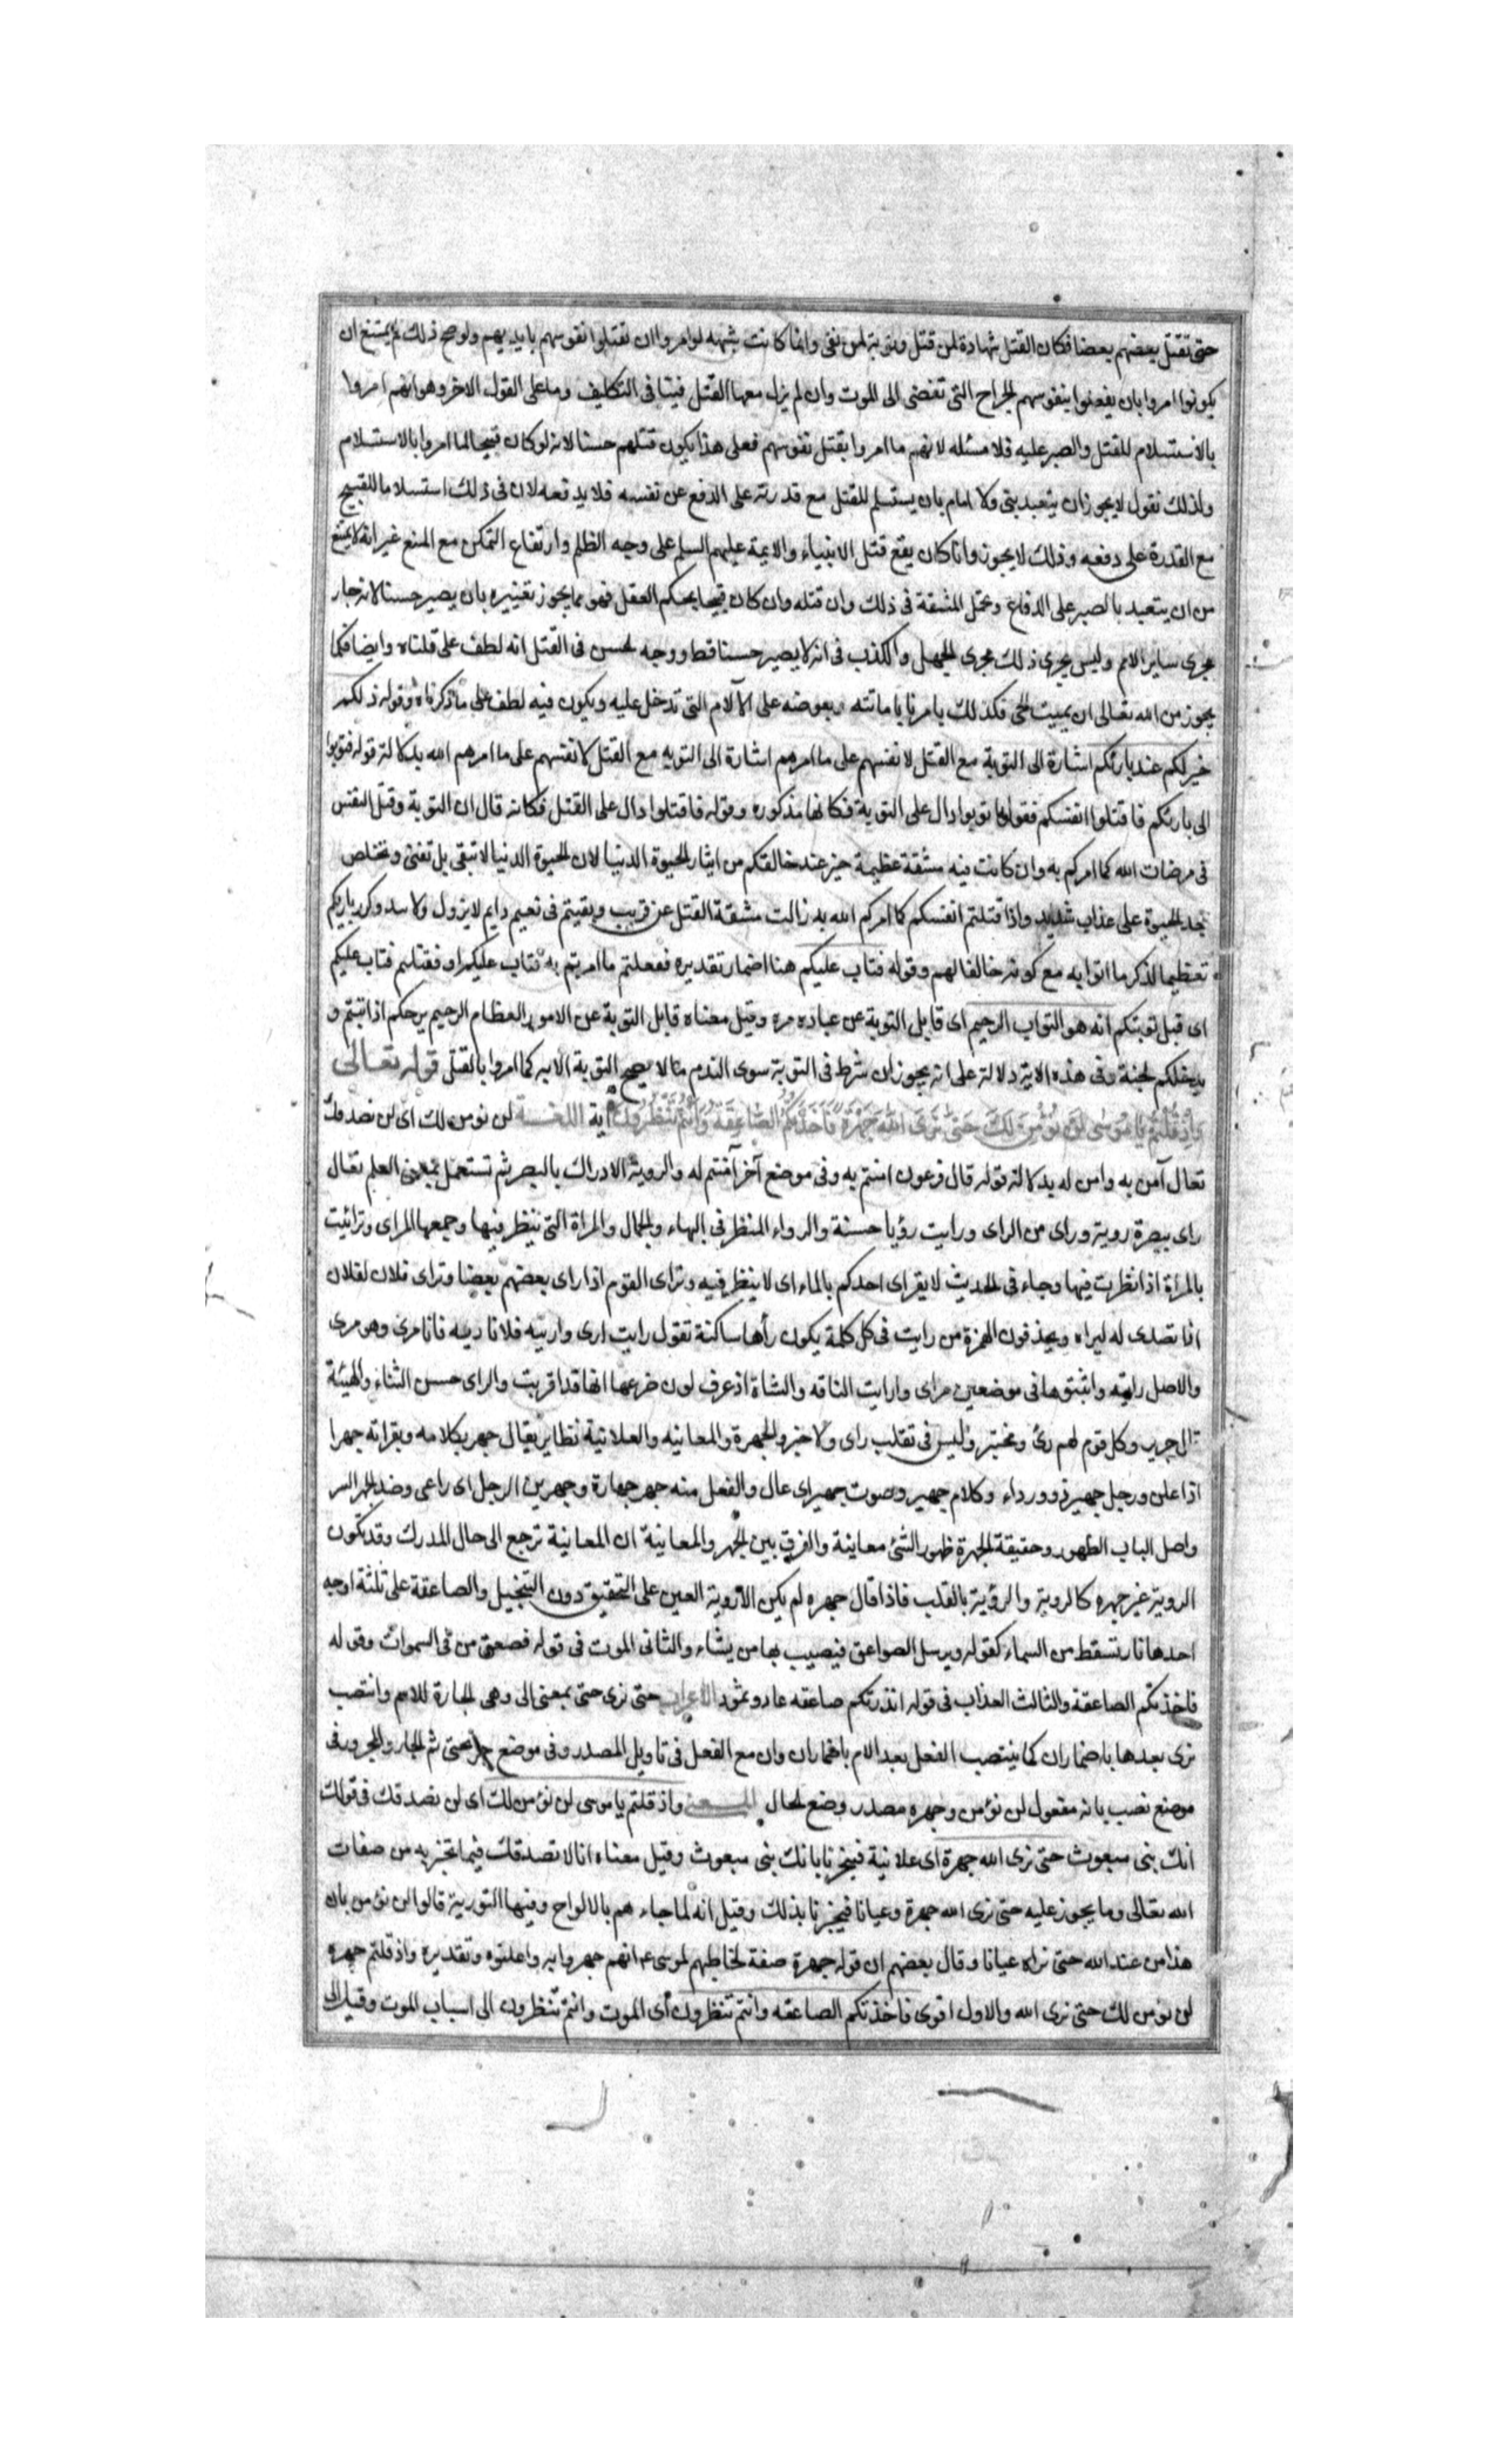 حتى تقتل بعضهم بعضا فكان القتل شهادة لمن قتل وتوبة لمن بقى وانما كانت شبهه لو امروا ان يقتلوا نفوسهم بايديهم ولو صح ذلك لم يمتنع ان
يكونوا امروا بان يفعلوا بنفوسهم الجراح التى تفضى الى الموت وان لم يزل معها القتل فيتنافى التكليف وما على القول الاخر وهو انهم امروا
بالاستسلام للقتل والصبر عليه فلا مسئله لانهم ما امروا بقتل نفوسهم فعلى هذا يكون قتلهم حسنا لانه لو كان قبيحا لما امروا بالاستسلام
ولذلك نقول لا يجوز ان يتعبد بنى ولا امام بان يستسلم للقتل مع قدرته على الدفع عن نفسه فلا يدفعه لان فى ذلك استسلاما للقبيح
مع القدرة على دفعه وذلك لا يجوز وانما كان يقع قتل الانبياء والايمة عليهم السلم على وجه الظلم وارتفاع التمكن مع المنع غير انه لا يمتنع
من ان يتعبد بالصبر على الدفاع وتحمل المشقة فى ذلك وان قتله وان كان قبيحا بحكم العقل فهو مما يجوز تغييره بان يصير حسنا لانه جار
مجرى ساير الالام وليس يجرى ذلك مجرى الجهل والكذب فى انه لا يصير حسنا قط ووجه الحسن فى القتل انه لطف على قلناه وايضا فكما
يجوز من الله تعالى ان يميت الحى فكذلك يامرنا باماتته ويعوضه على الآلام التى تدخل عليه ويكون فيه لطف على ما ذكرناه وقوله ذلكم
خير لكم عند بارئكم اشارة الى التوبة مع القتل لانفسهم على ما امرهم اشارة الى التوبه مع القتل لانفسهم على ما امرهم الله بدلالة قوله فتوبوا
الى بارئكم فاقتلوا انفسكم فقوله توبوا دال على التوبة فكانها مذكوره وقوله فاقتلوا دال على القتل فكانه قال ان التوبة وقتل النفس
فى مرضات الله كما امركم به وان كانت فيه مشقة عظيمة خير عند خالقكم من ايثار الحيوة الدنيا لان الحيوة الدنيا لا تبقى بل تفنى وتخلص
بعد الحيوة على عذاب شديد واذا قتلتم انفسكم كما امركم الله به زالت مشقة القتل عن قريب وبقيتم فى نعيم دايم لا يزول ولا يبيد وكرر باريكم
تعظيما لذكر ما اتوا به مع كونه خالقا لهم وقوله فتاب عليكم هنا اضمار تقديره ففعلتم ما امرتم به فتاب عليكم او فقتلتم فتاب عليكم
اى قبل توبتكم انه هو التواب الرحيم اى قابل التوبة عن عباده مره وقيل معناه قابل التوبة عن الامور العظام الرحيم يرحمكم اذا تبتم و
يدخلكم الجنة وفى هذه الاية دلالة على انه يجوز ان يشرط فى التوبة سوى الندم ما لا يصح التوبة الا به كما امروا بالقتل قوله تعالى
وَاِذْ قُلْتُمْ يا مُوسى لَنْ نُؤْمِنَ لَكَ حَتّى نَرَى اللهَ جَهْرَةً فَاَخَذَتْكُمُ الصّاعِقَةُ وَاَنْتُمْ تَنْظُرُونَ اية اللغة لن نومن لك اى لن نصدقك
تقال آمن به وامن له بدلالة قوله قال فرعون امنتم به وفى موضع آخر آمنتم له والروية الادراك بالبصر ثم تستعمل بمعنى العلم يقال
راى ببصره روية وراى من الراى ورايت رؤيا حسنة والرواء المنظر فى البهاء والجمال والمراة التى ينظر فيها وجمعها المراى وترائيت
بالمراة اذا نظرت فيها وجاء فى الحديث لا يتراى احدكم بالماء اى لا ينظر فيه وتراى القوم اذا راى بعضهم بعضا وتراى فلان لفلان
اذا تصدى له ليراه ويحذفون الهمزة من رايت فى كل كلمة يكون رأها ساكنة تقول رايت ارى واريته فلانا فانا مرى وهو مرى
والاصل رايته واثبتوها فى موضعين مراى وارايت الناقه والشاة اذ عرف لون ضرعها انها قد اقربت والراى حسن الثناء والهيئة
قال جرير وكل قوم لهم رئ ومختبر وليس فى تغلب راى ولا خبر والجهرة والمعاينه والعلانية نظاير يقال جهر بكلامه وبقراته جهرا
اذا علن ورجل جهير ذو رواء وكلام جهير وصوت جهير اى عال والفعل منه جهر جهارة وجهرنى الرجل اى راعنى وضد الجهر السر
واصل الباب الظهور وحقيقة الجهرة ظهور الشئ معاينة والفرق بين الجهر والمعاينة ان المعاينة ترجع الى حال المدرك وقد تكون
الروية غير جهره كالروية والرؤية بالقلب فاذا قال جهره لم يكن الا روية العين على التحقيق دون التخييل والصاعقة على ثلثة اوجه
احدها نار تسقط من السماء كقوله ويرسل الصواعق فيصيب بها من يشاء والثانى الموت فى قوله فصعق من فى السموات وقوله
فاخذتكم الصاعقة والثالث العذاب فى قوله انذرتكم صاعقه عاد وثمود الاعراب حتى نرى حتى بمعنى الى وهى الجارة للاسم وانتصب
نرى بعدها باضمار ان كما ينتصب الفعل بعد الام باضمار ان وان مع الفعل فى تاويل المصدر وفى موضع جر بحتى ثم الجار والمجرور فى
موضع نصب بانه مفعول لن نؤمن وجهره مصدر وضع الحال المعنى واذ قلتم يا موسى لن نؤمن لك اى لن نصدقك فى قولك
انك بنى مبعوث حتى نرى الله جهرة اى علانية فيخبرنا بانك بنى مبعوث وقيل معناه انا لا نصدقك فيما تخبر به من صفات
الله تعالى وما يجوز عليه حتى نرى الله جهرة وعيانا فيخبرنا بذلك وقيل انه لما جاءهم بالالواح وفيها التورية قالوا لن نؤمن بان
هذا من عند الله حتى نراه عيانا وقال بعضهم ان قوله جهرة صفة لخاطبهم لموسى ع انهم جهروا به واعلنوه وتقديره واذ قلتم جهره
لن نؤمن لك حتى نرى الله والاول اقوى فاخذتكم الصاعقه وانتم تنظرون اى الموت وانتم تنظرون الى اسباب الموت وقيل الى